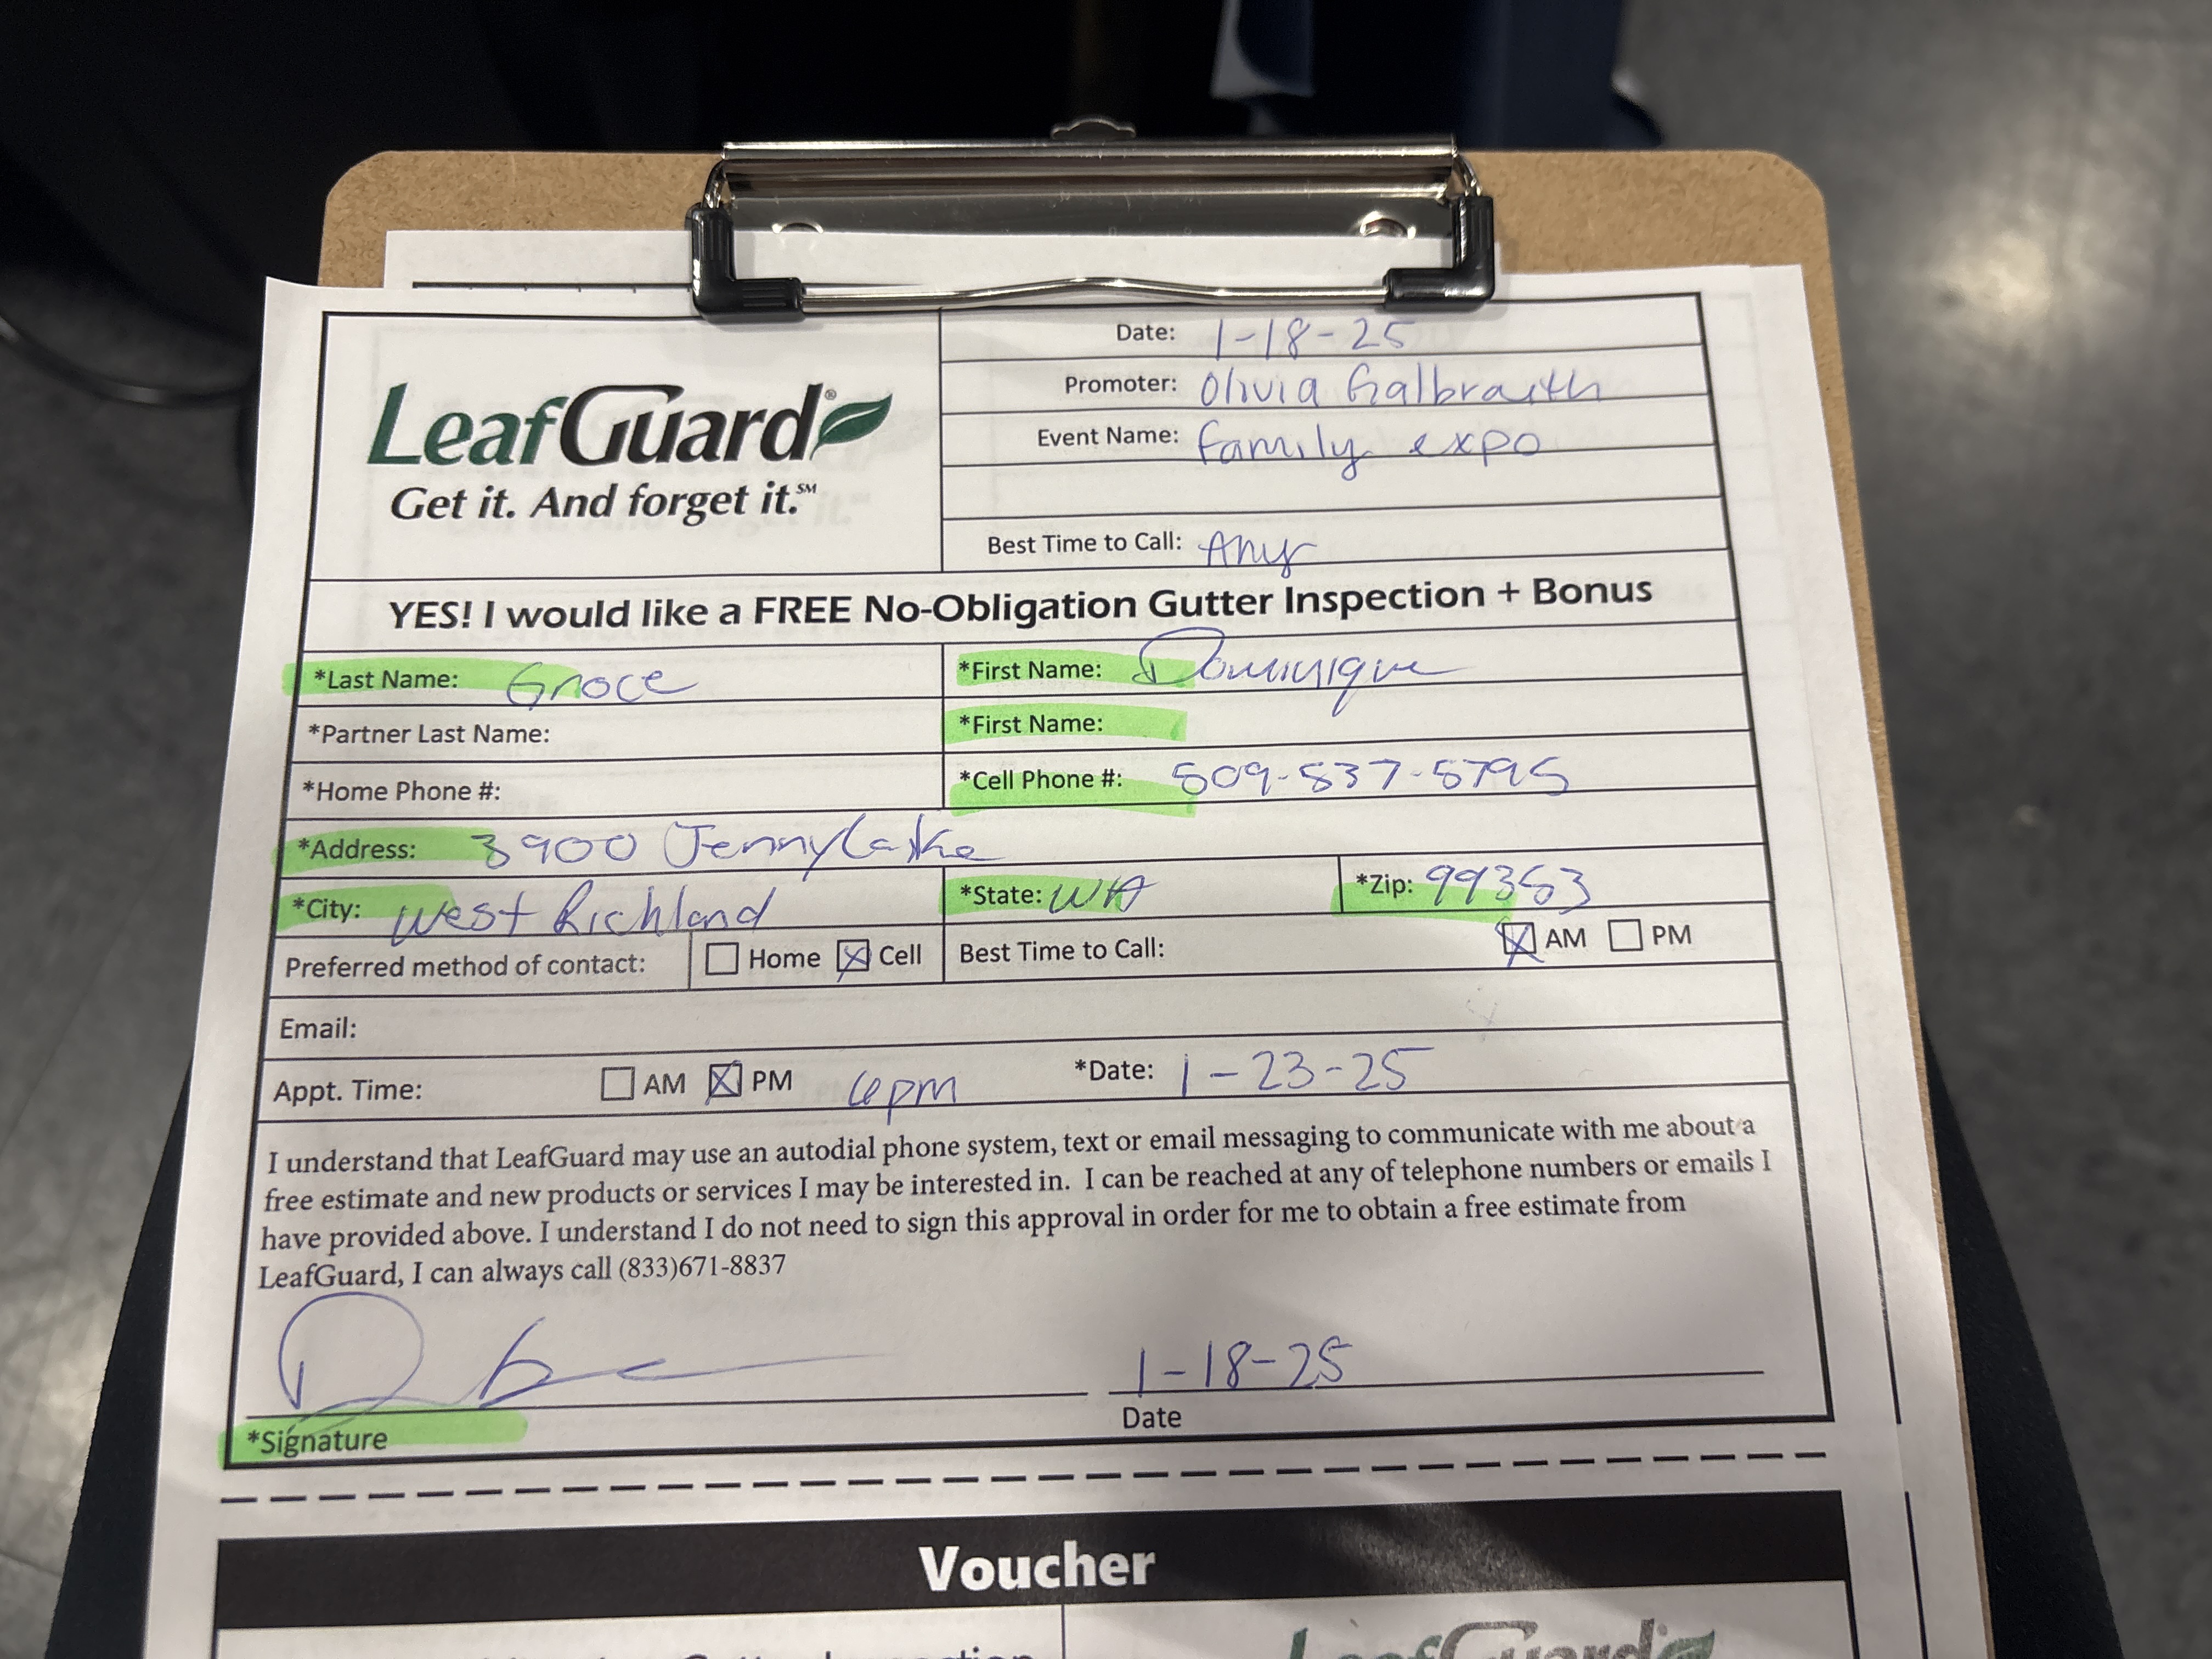 LeafGuard®
Get it. And forget it.℠
Date: 1-18-25
Promoter: Olivia Galbraith
Event Name: family expo
Best Time to Call: Any
YES! I would like a FREE No-Obligation Gutter Inspection + Bonus
*Last Name: Groce *First Name: Dominique
*Partner Last Name: *First Name:
*Home Phone #: *Cell Phone #: 509-837-5795
*Address: 3900 Jenny Lake
*City: West Richland *State: WA *Zip: 99353
Preferred method of contact: Home Cell Best Time to Call: AM PM
Email:
Appt. Time: AM PM 6pm *Date: 1-23-25
I understand that LeafGuard may use an autodial phone system, text or email messaging to communicate with me about a
free estimate and new products or services I may be interested in. I can be reached at any of telephone numbers or emails I
have provided above. I understand I do not need to sign this approval in order for me to obtain a free estimate from
LeafGuard, I can always call (833)671-8837
1-18-25
*Signature Date
Voucher
LeafGuard